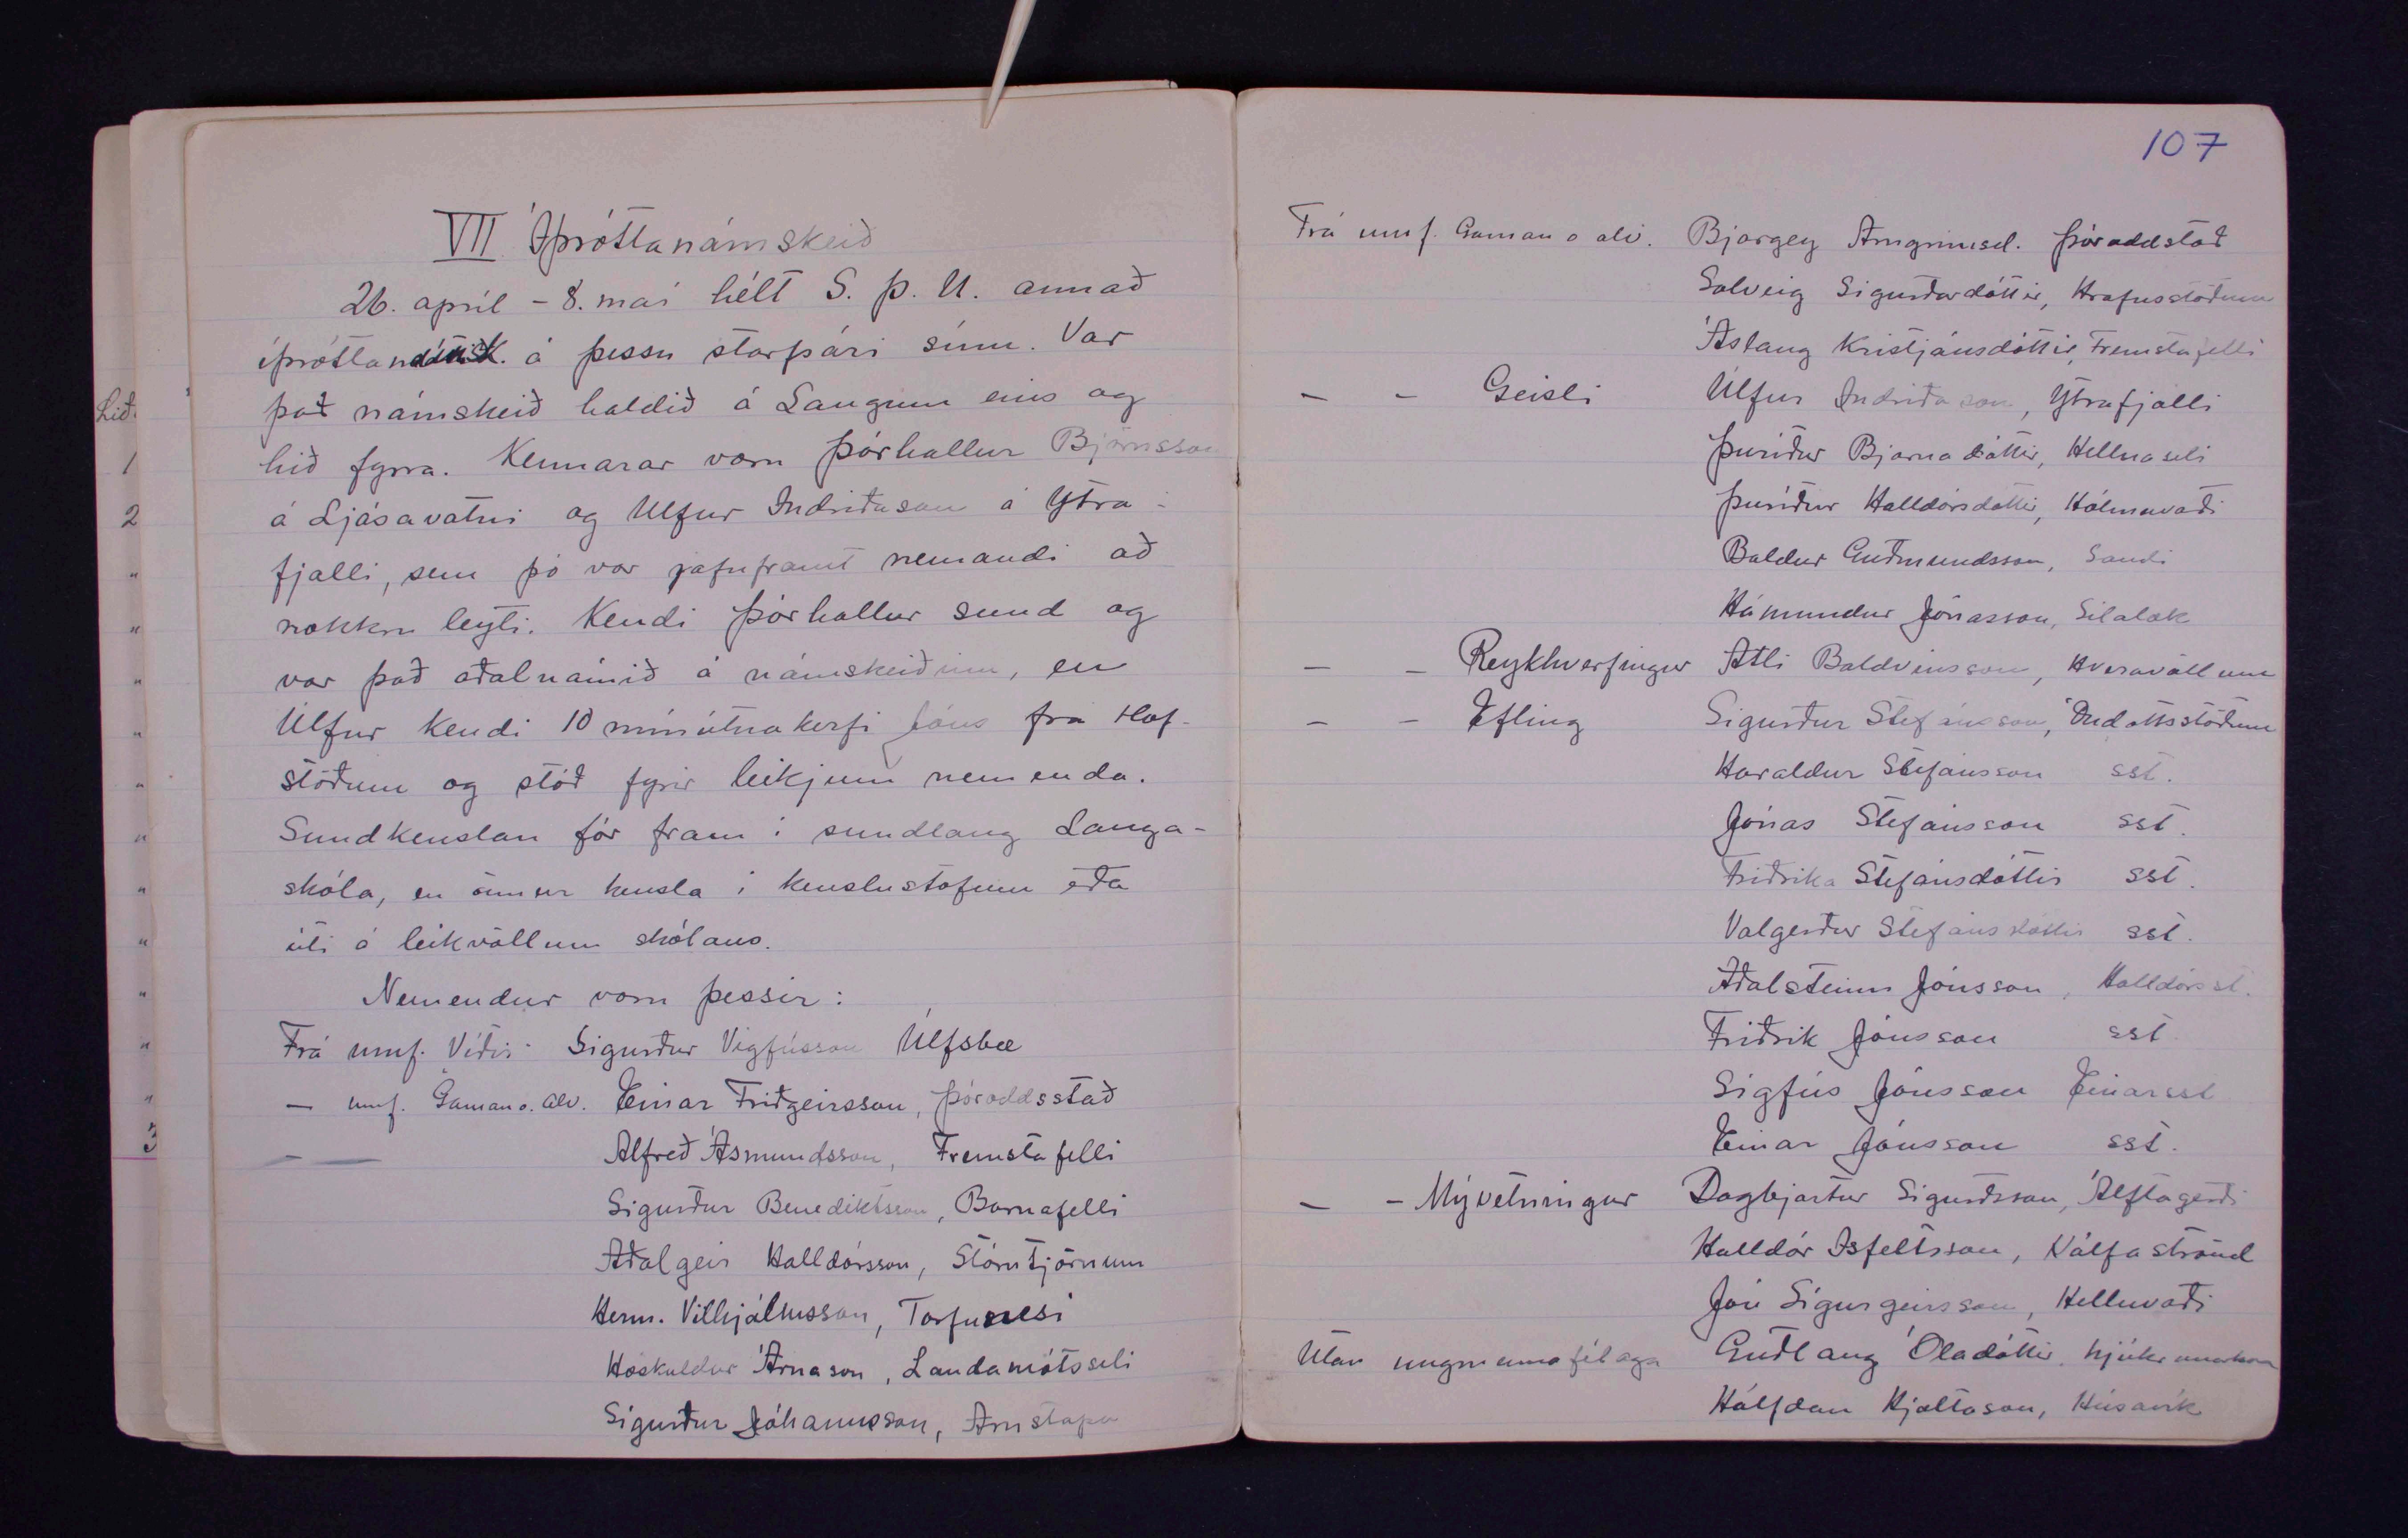 VII Íþróttanámskeið
26. apríl - 8. maí hélt S. Þ. U. annað
íþróttanámsk. á þessu starfsári sínu. Var
það námskeið haldið á Laugum eins og
hið fyrra. Kennarar voru Þórhallur Björnsson
á Ljósavatni og Úlfur Indriðason á Ytra-
fjalli, sem þó var jafnframt nemandi að
nokkru leyti. Kendi Þórhallur sund og
var það aðalnámið á námskeiðinu, en
Úlfur kendi 10 mínútnakerfi Jóns frá Hof-
stöðum og stóð fyrir leikjum nemenda.
Sundkenslan fór fram í sundlaug Lauga-
skóla, en önnur kensla í kenslustofum eða
úti á leikvöllum skólans.
Nemendur voru þessir:
Frá umf. Víðir Sigurður Vigfússon Úlfsbæ
— umf. Gaman o. alv. Einar Friðgeirsson, Þóroddsstað
— — Alfreð Ásmundsson, Fremstafelli
Sigurður Benediktsson, Barnafelli
Aðalgeir Halldórsson, Stórutjörnum
Herm. Vilhjálmsson, Torfunesi
Höskuldur Árnason, Landamótsseli
Sigurður Jóhannesson, Arnstapa
Lið
1
2
"
"
"
"
"
"
"
"
"
"
"
3
107
Frá umf. Gaman o alv. Bjargey Arngrímsd. Þóroddstað
Solveig Sigurðardóttir, Hrafnsstöðum
Áslaug Kristjánsdóttir, Fremstafelli
— - Geisli Úlfur Indriðason, Ytrafjalli
Þuríður Bjarnadóttir, Hellnaseli
Þuríður Halldórsdóttir, Hólmavaði
Baldur Guðmundsson, Sandi
Hámundur Jónasson, Sílalæk
— — Reykhverfingur Atli Baldvinsson, Hveravöllum
— - Efling Sigurður Stefánsson, Öndólfsstöðum
Haraldur Stefánsson sst.
Jónas Stefánsson sst.
Friðrika Stefánsdóttir sst.
Valgerður Stefánsdóttir sst.
Aðalsteinn Jónsson, Halldórsst.
Friðrik Jónsson sst
Sigfús Jónsson Einarsst
Einar Jónsson sst.
— - Mývetningur Dagbjartur Sigurðsson, Álftagerði
Halldór Ísfeldsson, Kálfaströnd
Jón Sigurgeirsson, Helluvaði
Utan ungmennafélaga Guðlaug Óladóttir, hjúkrunarkona
Hálfdan Hjaltason, Húsavík